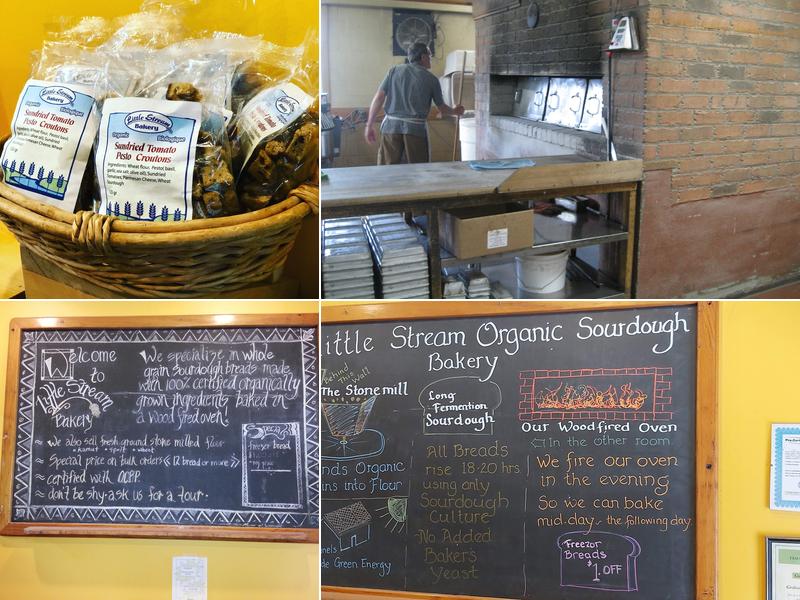 Little Stream
Bakery
Organic
Biologique
Sundried Tomato
Pesto Croutons
Little Stream
Bakery
Organic
Biologique
Sundried Tomato
Pesto Croutons
Ingredients: Wheat flour, Pesto( basil,
garlic, sea salt, olive oil), Sundried
Tomatoes, Parmesan Cheese, Wheat
Sourdough
Welcome
to
Little Stream
Bakery
We specialize in whole
grain Sourdough breads made
with 100% certified organically
grown ingredients baked in
a wood fired oven!
≈ We also sell fresh ground stone milled flour
• Kamut • spelt • wheat
≈ Special price on bulk orders << 12 bread or more >>
≈ certified with OCPP.
≈ don't be shy-ask us for a tour.
Specials
freezer bread
ittle Stream Organic Sourdough
Bakery
Behind
This Wall
The Stone mill
nds Organic
ins into Flour
nels
de Green Energy
Long
Fermentation
Sourdough
All Breads
rise 18-20 hrs
using only
Sourdough
Culture
No Added
Baker's
Yeast
Our Woodfired Oven
In the other room
We fire our oven
in the evening
So we can bake
mid-day - the following day
Freezor
Breads
$1 OFF